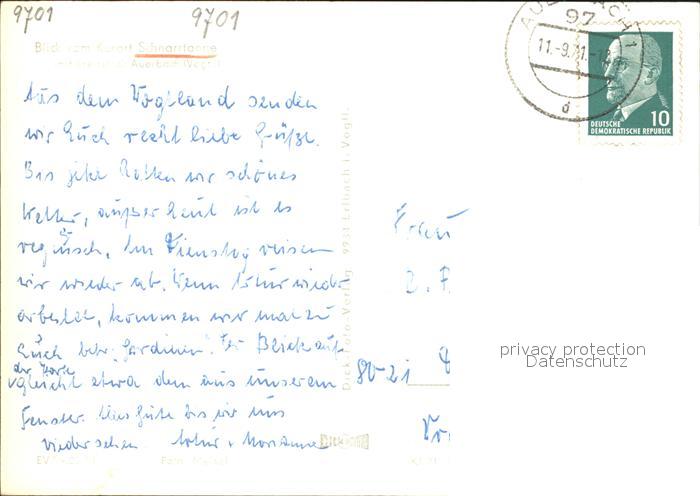 9701 9701
Blick vom Kurort Schnarrtanne
Auerbach (Vogtl.)
AUERBACH 1
97
11.-9.71.-1
d
10
DEUTSCHE
DEMOKRATISCHE REPUBLIK
Aus dem Vogtland senden
wir Euch recht liebe Grüße.
Bis jetzt hatten wir schönes
Wetter, außer heut ist es
regnerisch. Am Dienstag reisen
wir wieder ab. Wenn Artur wieder
arbeitet, kommen wir mal zu
Euch betr. Gardinen. Der Blick auf
der Karte
gleicht etwa dem aus unserem
Fenster. Alles Gute bis wir uns
wiedersehen. Artur + Marianne
Dick Foto-Verlag 9931 Erlbach i. Vogtl.
Frau
8021
privacy protection
Datenschutz